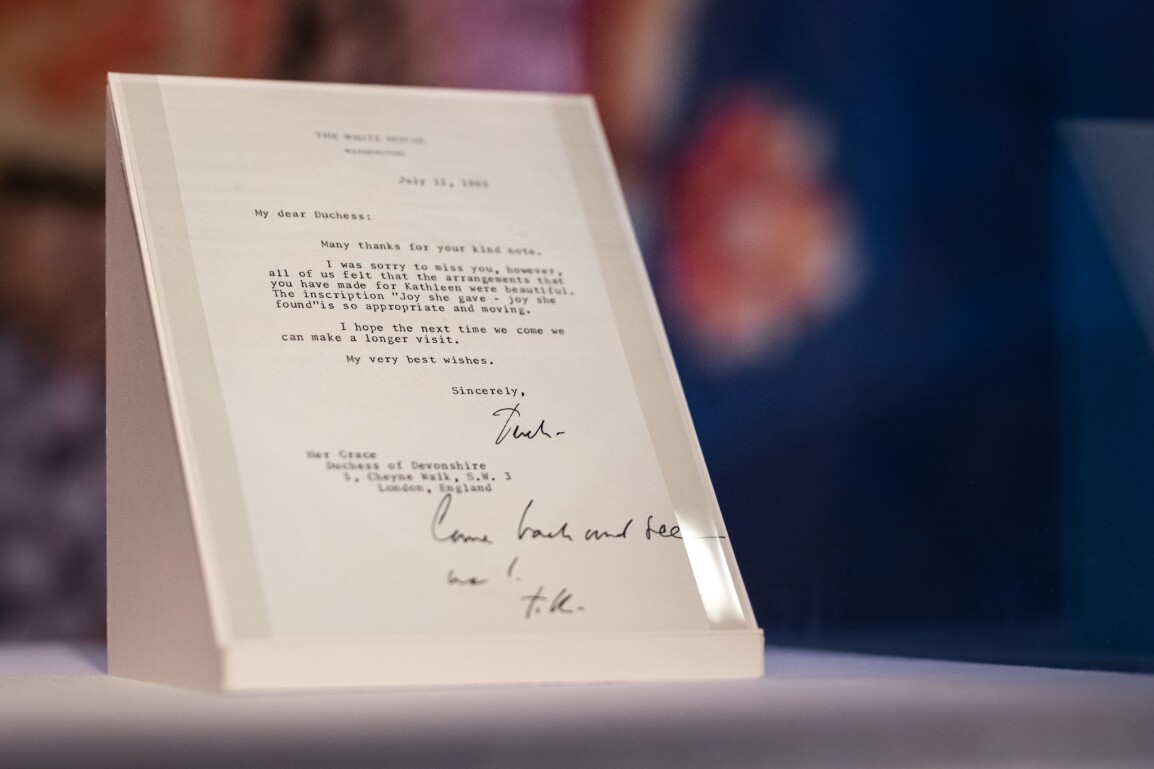 THE WHITE HOUSE
WASHINGTON
July 11, 1963
My dear Duchess:
Many thanks for your kind note.
I was sorry to miss you, however,
all of us felt that the arrangements that
you have made for Kathleen were beautiful.
The inscription "Joy she gave - joy she
found"is so appropriate and moving.
I hope the next time we come we
can make a longer visit.
My very best wishes.
Sincerely,
Her Grace
Duchess of Devonshire
5, Cheyne Walk, S.W. 3
London, England
Come back and see
us!